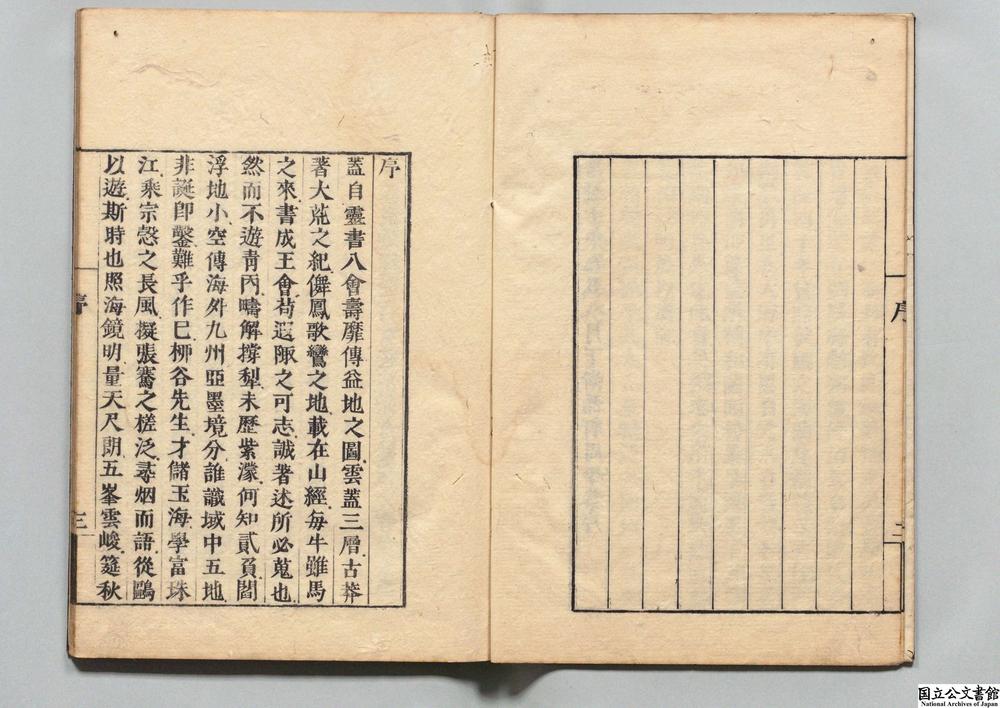 序
二
序
蓋自靈書八會壽靡傳益地之圖雲蓋三層古莽
著大荒之紀儛鳳歌鸞之地載在山經每牛雖馬
之來書成王會苟遐陬之可志誠著述所必蒐也
然而不遊青丙疇解撐犁未歷紫濛何知貳負閻
浮地小空傳海外九州亞墨境分誰識域中五地
非誕卽鑿難乎作巳栁谷先生才儲玉海學富珠
江乘宗慤之長風擬張騫之槎泛尋烟而語從鷗
以遊斯時也照海鏡明量天尺朗五峯雲峻筵秋
序
三
国立公文書館
National Archives of Japan